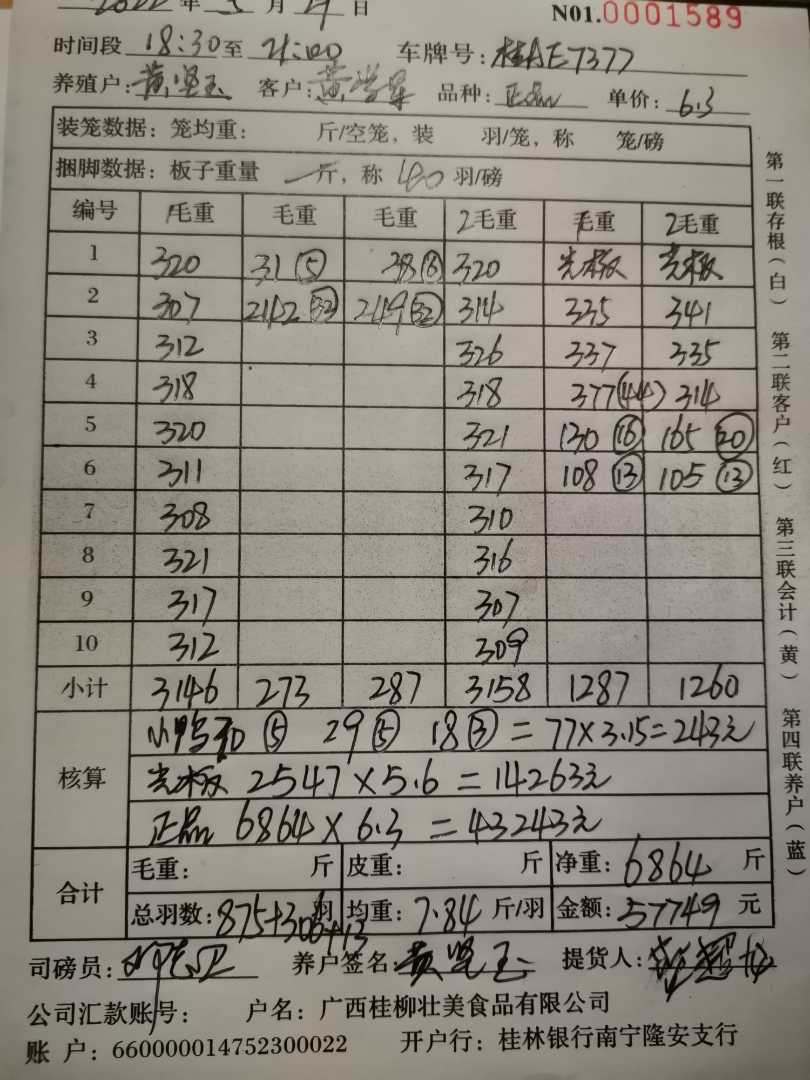 2022年5月29日 N01.0001589
时间段 18:30至 21:00 车牌号:桂AE7377
养殖户:黄坚玉 客户:黄 品种:正品 单价:6.3
装笼数据:笼均重: 斤/空笼,装 羽/笼,称 笼/磅
捆脚数据:板子重量 一斤,称 40 羽/磅
编号 1毛重 毛重 毛重 2毛重 1毛重 2毛重
1 320 31⑤ 38 320 光板 光板
2 307 242(32) 249(32) 314 335 341
3 312 326 337 335
4 318 318 377(44) 314
5 320 321 130(16) 165(20)
6 311 317 108(13) 105(13)
7 308 310
8 321 316
9 317 307
10 312 309
小计 3146 273 287 3158 1287 1260
核算
小鸭30⑤ 29⑤ 18③=77×3.15=243元
光板 2547×5.6=14263元
正品 6864×6.3=43243元
合计
毛重: 斤 皮重: 斤 净重:6864 斤
总羽数:875+306+13 羽 均重:7.84 斤/羽 金额:57749 元
司磅员: 养户签名:黄坚玉 提货人:
公司汇款账号: 户名:广西桂柳壮美食品有限公司
账 户:660000014752300022 开户行:桂林银行南宁隆安支行
第一联存根(白) 第二联客户(红) 第三联会计(黄) 第四联养户(蓝)